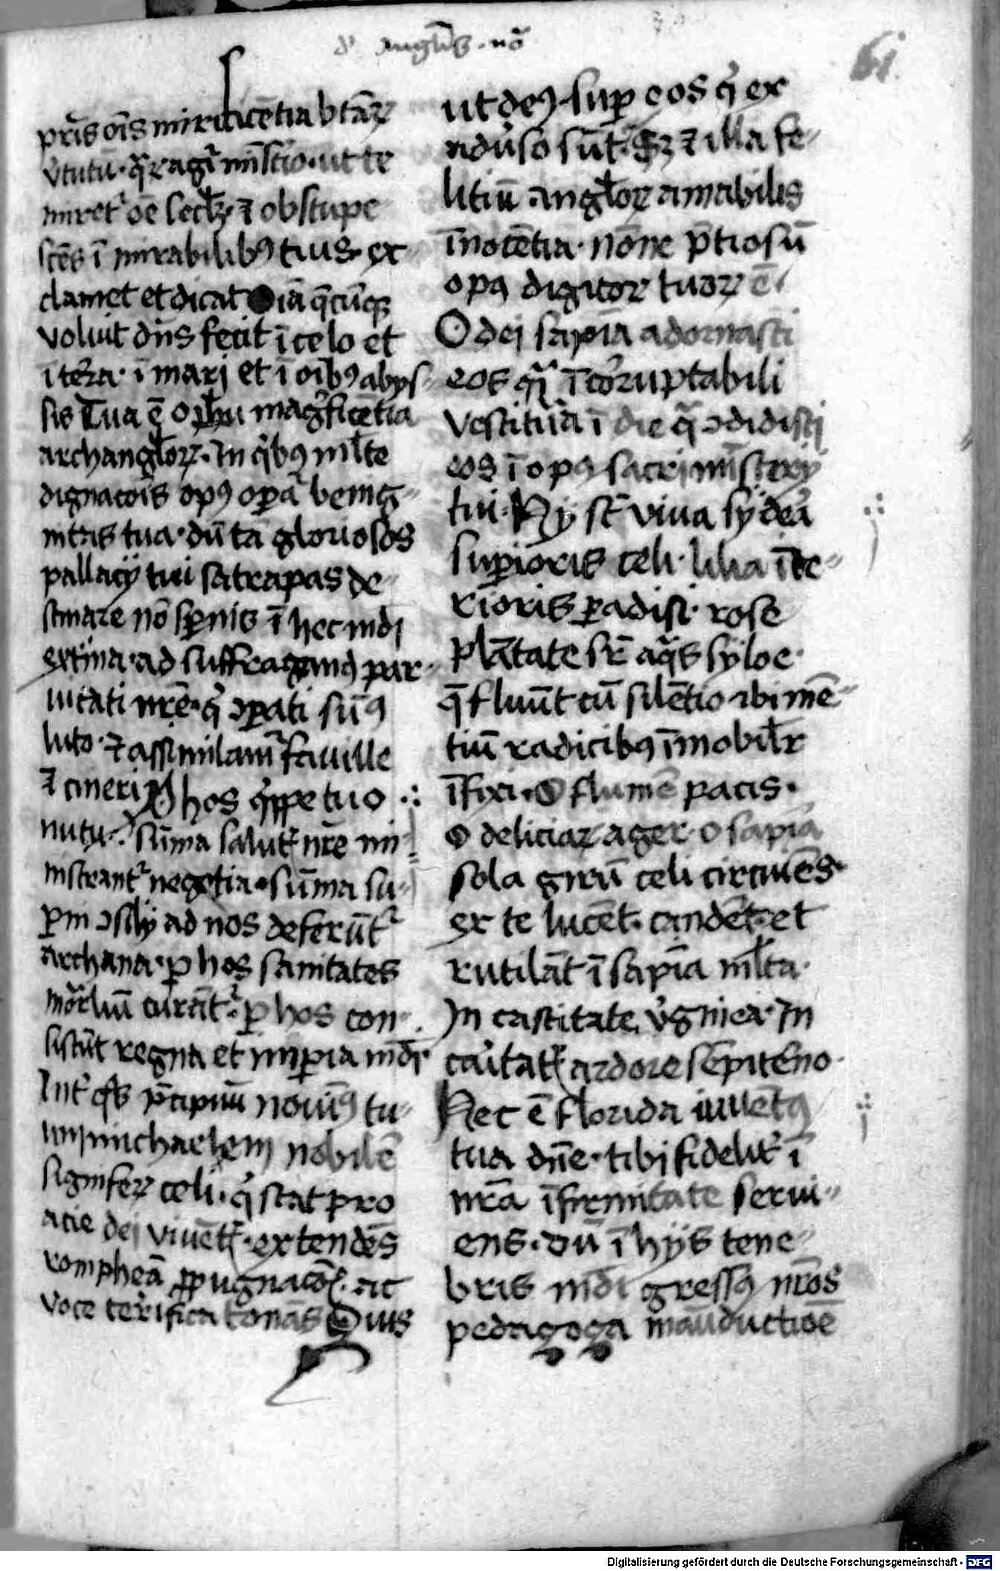 d' anglis . nō
61
pr̄is oīs miricicētia btāꝝ
v̄tutū · q̄ragī mīstro · ut te
miret᷑ oē sec̄lꝫ · ⁊ obstupe
scēs ī mirabilibꝰ tuis ex
clamet et dicat iā q̄cūqꝫ
voluit dn̄s fecit ī celo et
ī terra · ī mari et ī oībꝰ abys
sis Tua ē maḡficētia
archangloꝝ · In q̄bꝰ ml̄te
dignacōis opꝰ oꝑat᷑ benig
nitas tua · dū tā gloriosos
pallacij tui satrapas de
stinare nō spernis ī hec mūdi
extīa · ad suffragandꝰ par
uitati nr̄e · q̄ ꝯꝑati sumꝰ
luto · ⁊ assimilam᷑ fauille
⁊ cineri ꝑ hos q̄ppe tuo
nutu · sūma salut᷑ nr̄e mi
nistrant᷑ negotia · sūma su
ꝑni ꝯsilij ad nos deferūt᷑
archana · ꝑ hos sanitates
mortaliū curāt᷑ · ꝑ hos con
sistūt regna et imꝑia mūdi
Int᷑ q̄s p̄cipuū nouimꝰ tu
um michaelem nobilē
signiferꝝ celi · q̄ stat pro
acie dei viuent᷑ · extendēs
rompheā ꝓpugnacōis · ac
voce terrifica tonās Quis
ut deꝰ · suꝑ eos q̄ ex
adu̓so sūt · Sꝫ ⁊ illa fe
litiū angloꝝ amabilis
īnocētia · nōne p̄tiosū
opꝰ digitoꝝ tuoꝝ ē
O dei sapīa adornasti
eos q̄ īcorruptabili
vestitura ī die q̄ ꝯdidisti
eos ī opꝰ sacri mīsterij
tui · Hij sūt viua sydera
suꝑioris celi · lilia īte
rioris ꝑadisi · rose
plātate sr̄ aq̄s syloe ·
q̄ fluūt cū silētio · vbi mē
tiū radicibꝰ īmobilr̄
īfixi · O flumē pacis ·
O deliciaꝝ ager · o sapīa
sola girū celi circuiēs
ex te lucēt · candēt · et
rutilāt ī sapīa ml̄ta ·
In castitate v̓ginea · In
caritat᷑ ardore sēpiterno ·
Hec ē florida iuuētꝰ
tua dn̄e · tibi fidelit᷑ ī
nr̄a īfirmitate serui
ens · dū ī hijs tene
bris mūdi gressꝰ nr̄os
pedagoga manuductiōe
Digitalisierung gefördert durch die Deutsche Forschungsgemeinschaft - DFG